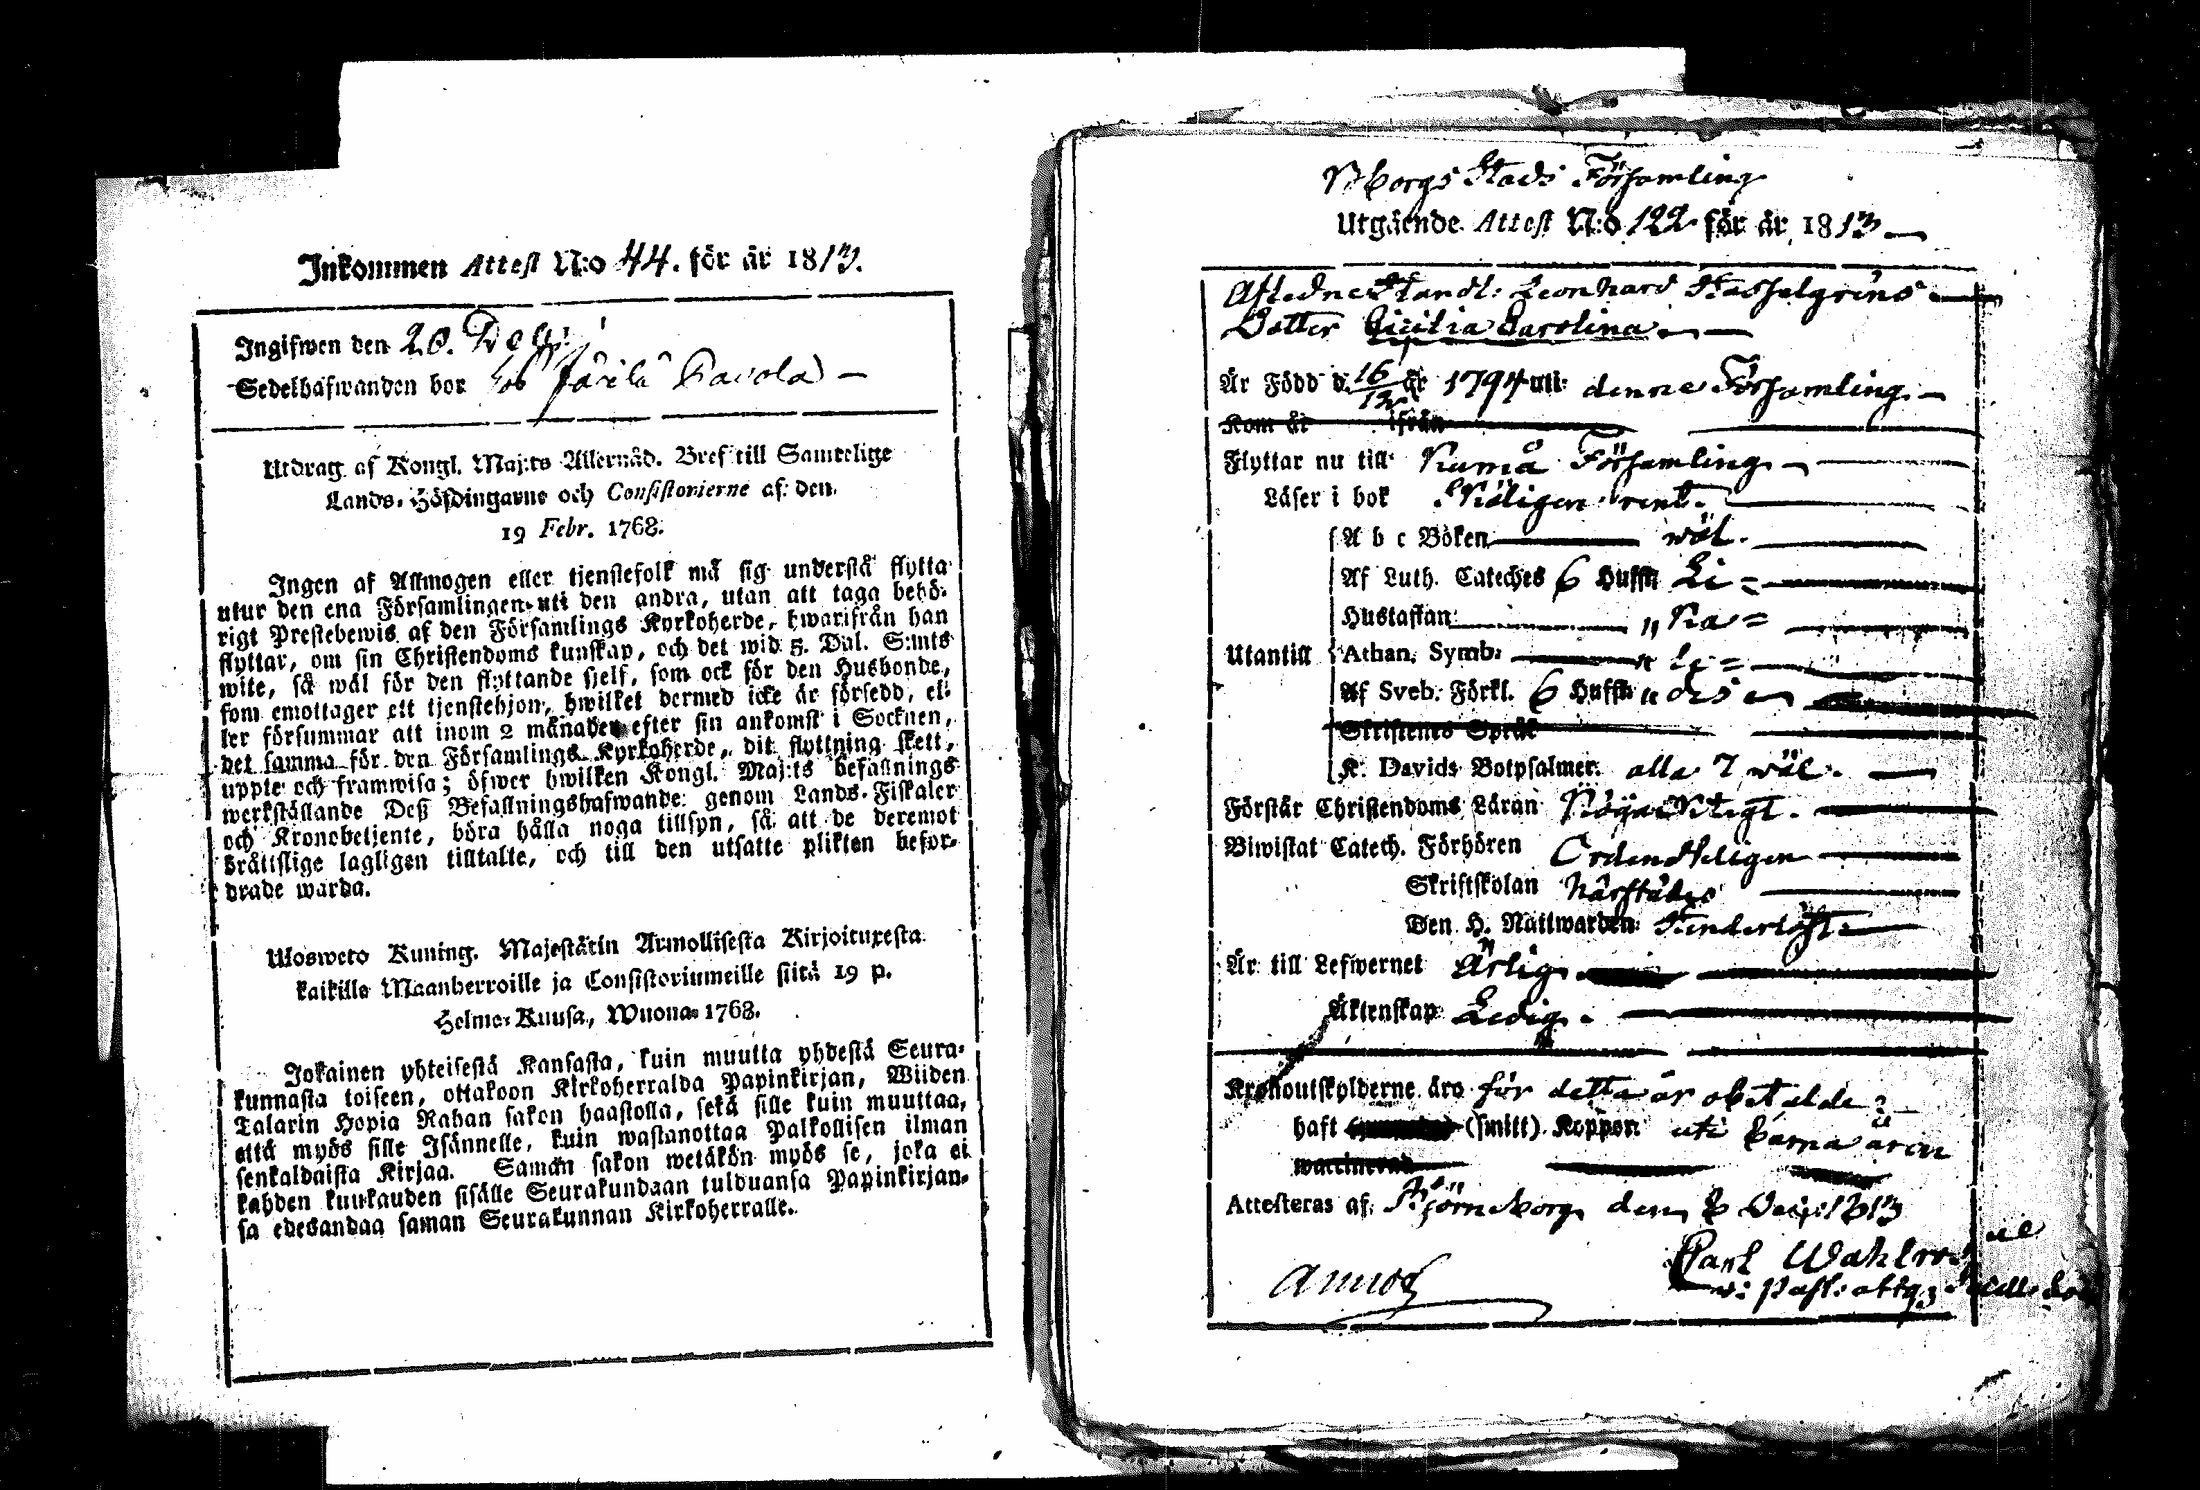 Inkommen Attest N:o 44. för år 1813.
Ingifwen den 20. Decbr
Sedelhafwanden bor hos Jäcilä Cavola
Utdrag af Kongl. Maj:ts Allernåd. Bref till Samtelige
Lands-Höfdingarne och Consistorierne af den
19 Febr. 1768.
Ingen af Allmogen eller tjenstefolk må sig understå flytta
utur den ena Församlingen uti den andra, utan att taga behö-
rigt Prestebewis af den Församlings Kyrkoherde, hwarifrån han
flyttar, om sin Christendoms kunskap, och det wid 5. Dal. S:mts
wite, så wäl för den flyttande sjelf, som ock för den Husbonde,
som emottager ett tjenstehjon, hwilket dermed icke är försedd, el-
ler försummar att inom 2 månader efter sin ankomst i Socknen,
det samma för den Församlings Kyrkoherde, dit flyttning skett,
uppte och framwisa; öfwer hwilken Kongl. Maj:ts befallnings
werkställande Deß Befallningshafwande genom Lands-Fiskaler
och Kronobetjente, böra hålla noga tillsyn, så att de deremot
bråttslige lagligen tilltalte, och till den utsatte plikten befor-
drade warda.
Ulosweto Kuning. Majestätin Armollisesta Kirjoituxesta
kaikille Maanherroille ja Consistoriumeille siitä 19 p.
Helme-Kuusa, Wuona 1768.
Jokainen yhteisestä Kansasta, kuin muutta yhdestä Seura-
kunnasta toiseen, ottakoon Kirkoherralda Papinkirjan, Wiiden
Talarin Hopia Rahan sakon haastolla, sekä sille kuin muuttaa,
että myös sille Isännelle, kuin wastanottaa Palkollisen ilman
senkaldaista Kirjaa. Samän sakon wetäkön myös se, joka ei
kahden kuukauden sisälle Seurakundaan tulduansa Papinkirjan-
sa edesandaa saman Seurakunnan Kirkoherralle.
Bborgs Stads Församling
Utgående Attest N:o 122 för år 1813
Afledne Handl: Leonhard Hasselgréns
Dotter Cicilia Carolina
Är Född d. 16/12 år 1794 uti denne Församling
Kom år ifrån
Flyttar nu till Kumå Församling
Läser i bok Nöligen rent.
Utantill
A b c Boken wäl.
Af Luth. Cateches 6 Huffst Li =
Hustaflan " Ka =
Athan. Symb. " Le =
Af Sveb. Förkl. 6 Huffst " des
Skriftenes Språk
K. Davids Botpsalmer alla 7 wäl.
Förstår Christendoms Läran Nöjacktigt.
Biwistat Catech. Förhören Ordenteligen
Skriftskolan härstädes
Den H. Nattwarden
Är till Lefwernet Ärlig
Äktenskap Ledig.
Kronoutskylderne äro för detta år betalde
haft (smitt) Koppor uti barna åren
waccinerad
Attesteras af Björneborg den 8 Decbr 1813
Carl Wahlroos